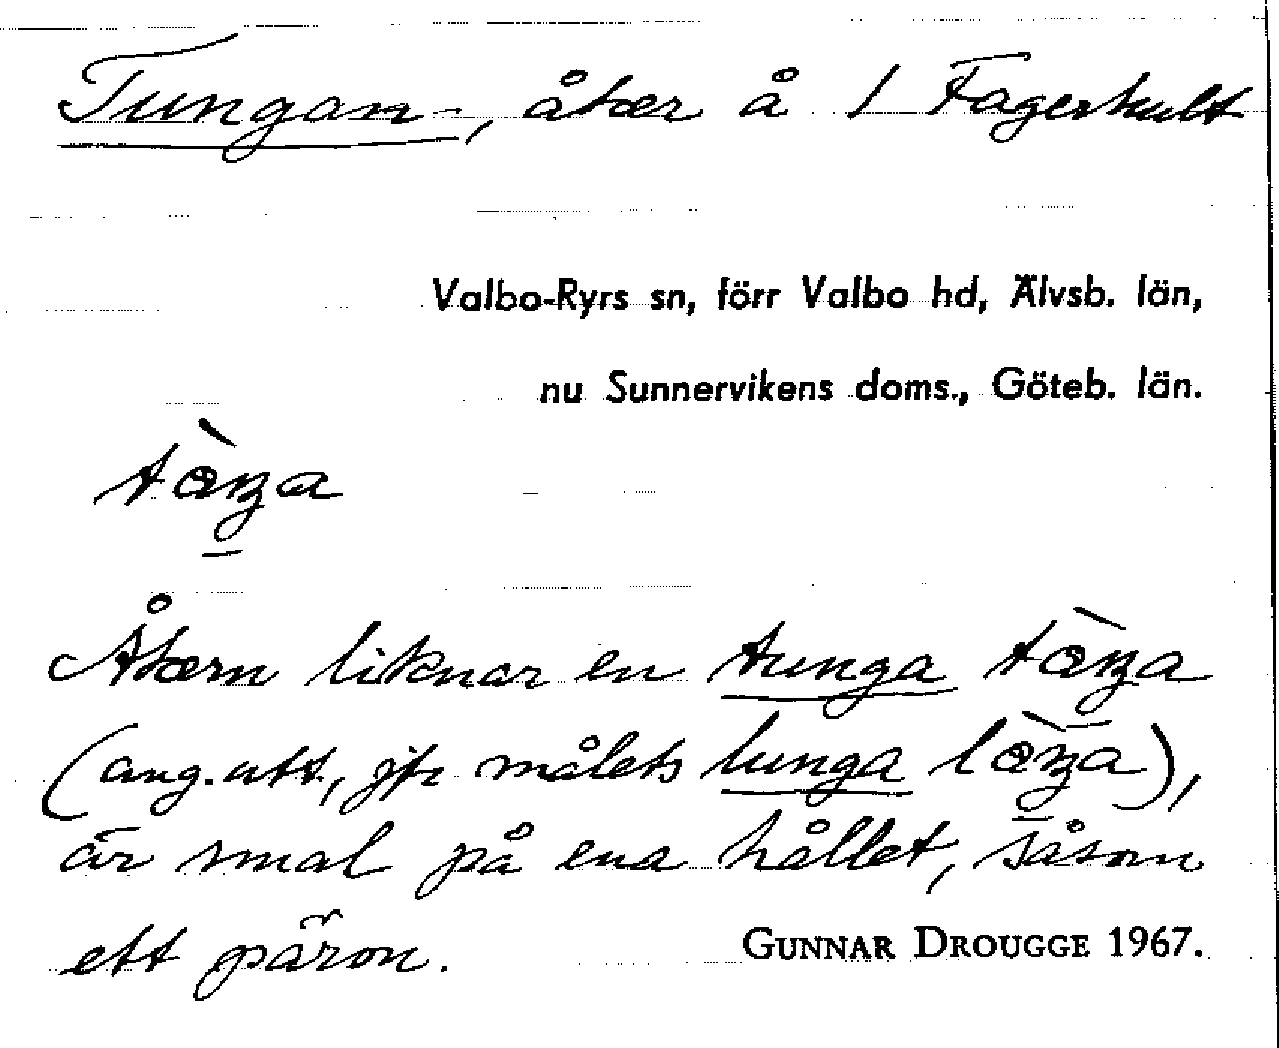 Tungan, åker å 1 Fagerhult
Valbo-Ryrs sn, förr Valbo hd, Älvsb. län,
nu Sunnervikens doms., Göteb. län.
Åkern liknar en tunga
(ang. utt., jfr målets lunga
är smal på ena hållet, såsom
ett päron.
GUNNAR DROUGGE 1967.